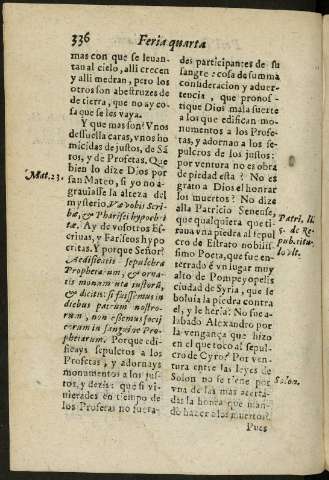 336 Feria quarta
mas con que se leuan-
tan al cielo, alli crecen
y alli medran, pero los
otros son abestruzes de
de tierra, que no ay co-
sa que se les vaya.
Y que mas son? Vnos
dessuella caras, vnos ho
micidas de justos, de Sã
tos, y de Profetas. Que
bien lo dize Dios por
san Mateo, si yo no a-
grauiasse la alteza del
mysterio. Væ vobis Scri-
bæ, & Pharisæi hypocri-
tæ. Ay de vosotros Es-
criuas, y Fariseos hypo
critas. Y porque Señor?
Aedificatis sepulchra
Prophetarum, & orna-
tis monumenta iustorũ,
& dicitis: si fuissemus in
diebus patrum nostro-
rum, non essemus socij
eorum in sanguine Pro-
phetarum. Porque edi-
ficays sepulcros a los
Profetas, y adornays
monumentos a los jus-
tos, y dezis: que si vi-
nierades en tiempo de
los Profetas no fuera-
Mat. 23.
des participantes de su
sangre: cosa de summa
consideracion y aduer-
tencia, que pronos-
tique Dios mala suerte
a los que edifican mo-
numentos a los Profe-
tas, y adornan a los se-
pulcros de los justos:
por ventura no es obra
de piedad esta? No es
grato a Dios el honrar
los muertos? No dize
alla Patricio Senense,
que qualquiera que ti-
raua vna piedra al sepul
cro de Estrato nobilis-
simo Poeta, que fue en-
terrado ẽ vn lugar muy
alto de Pompeyopolis
ciudad de Syria, que le
boluia la piedra contra
el, y le heria? No fue a-
labado Alexandro por
la vengança que hizo
en el que toco al sepul-
cro de Cyro? Por ven-
tura entre las leyes de
Solon no se tiene por
vna de las mas acerta-
das la honra que man-
dò hazer a los muertos?
Pues
Patri. li.
5. de Re
pub. titu.
Solon.